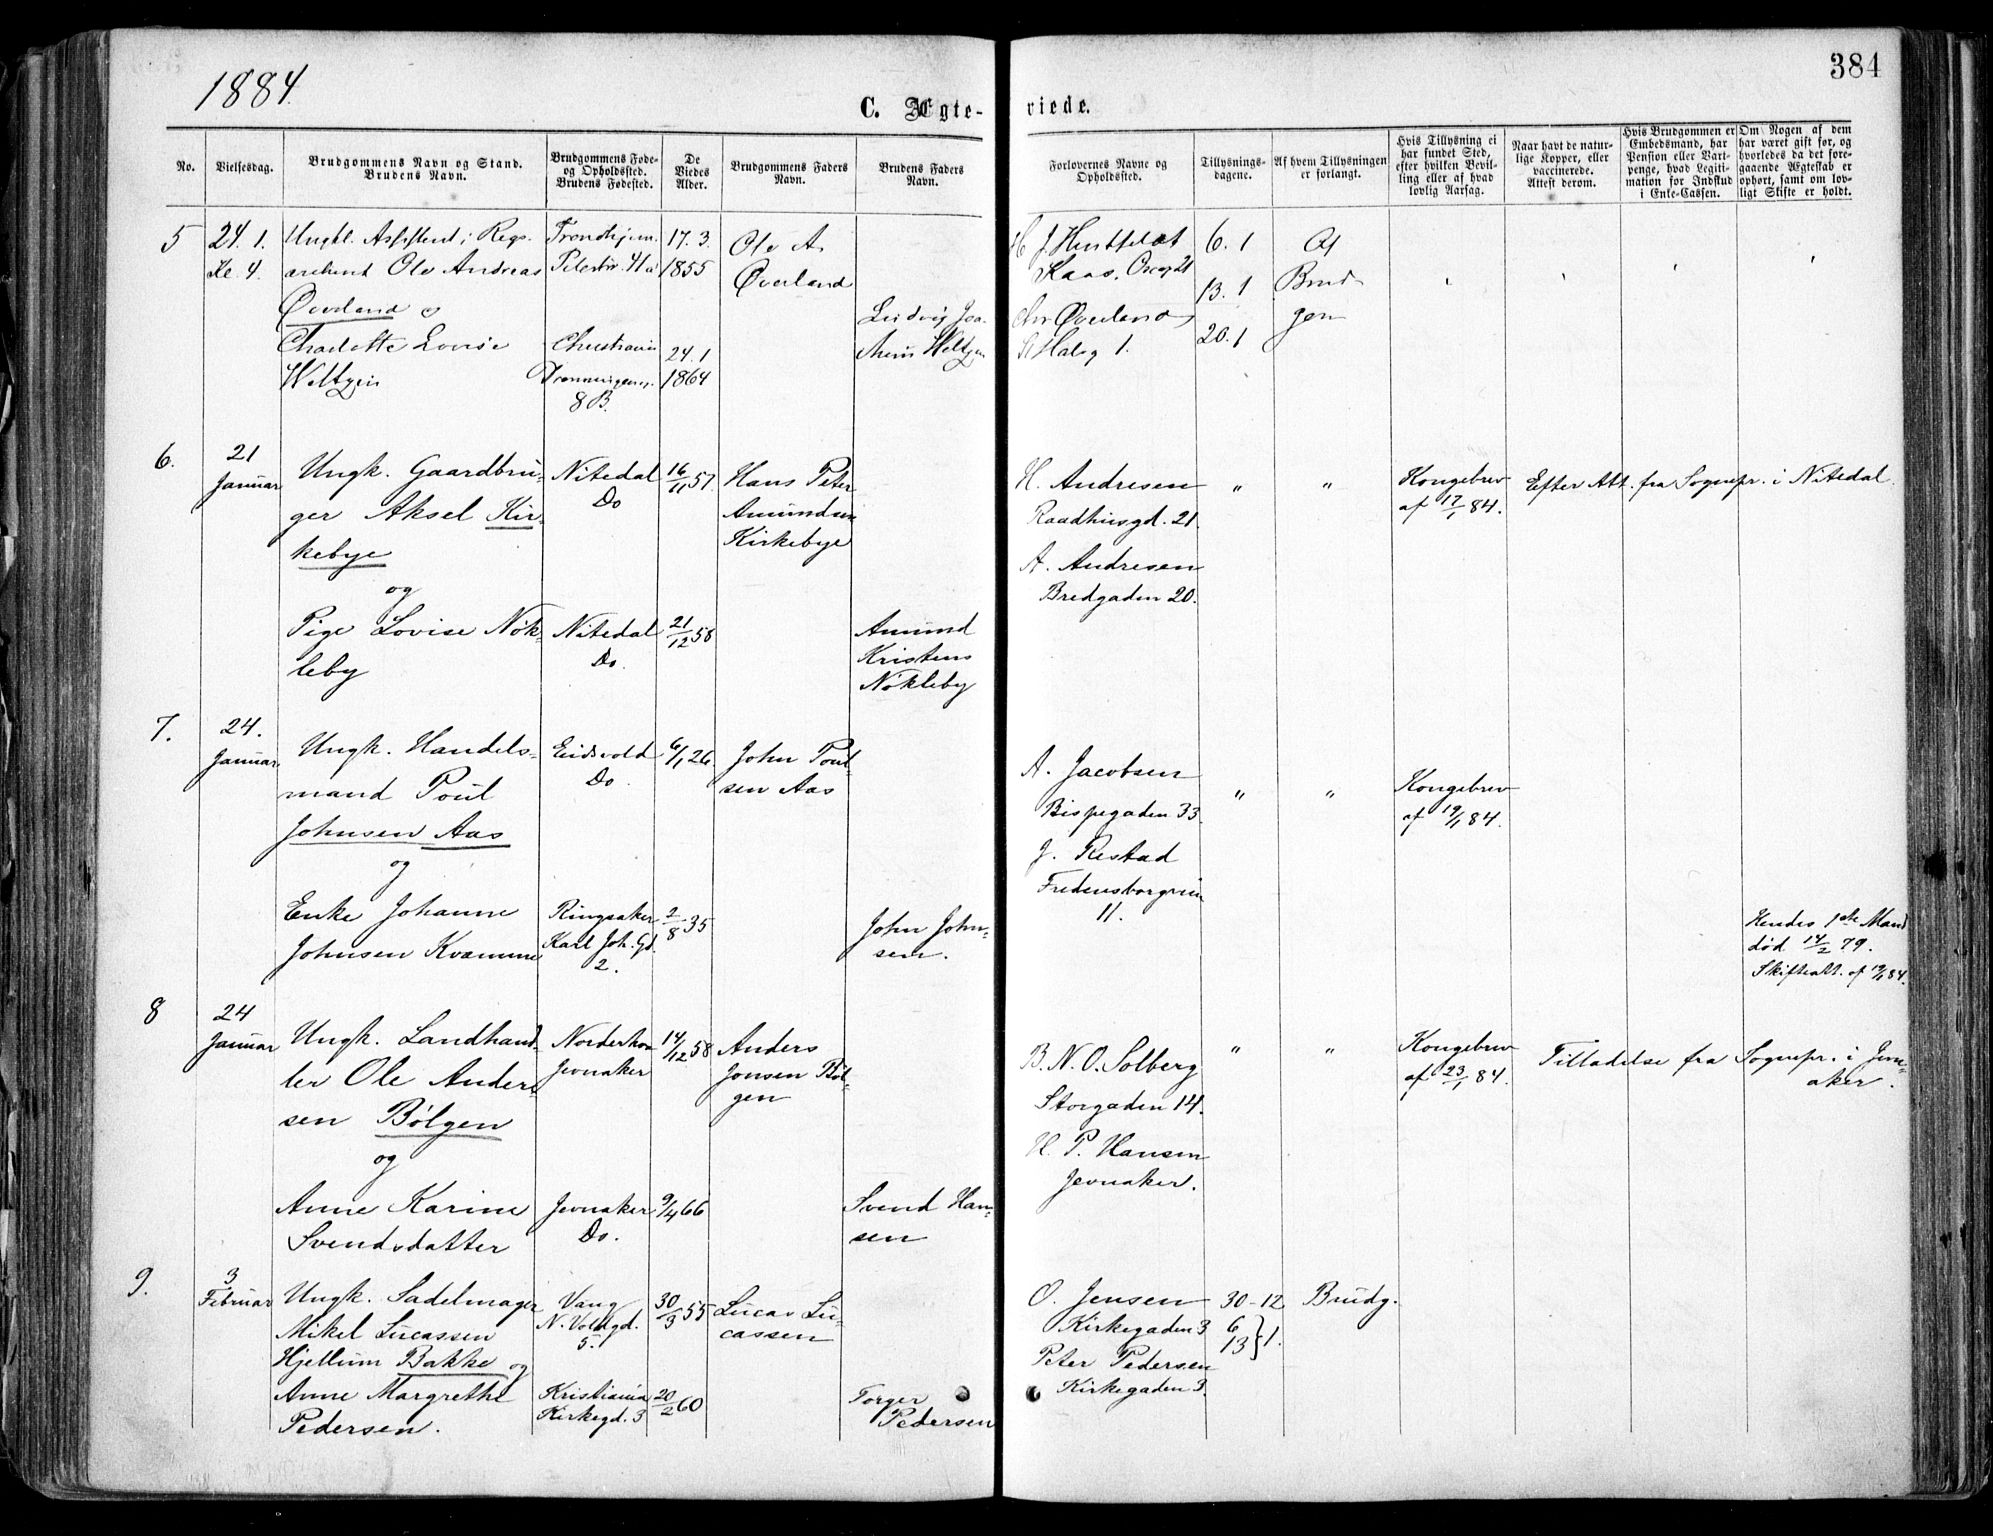 1884.
384
C. Ægte-
viede.
No.
Vielsesdag.
Brudgommens Navn og Stand.
Brudens Navn.
Brudgommens Føde-
og Opholdssted.
Brudens Fødested.
De
Viedes
Alder.
Brudgommens Faders
Navn.
Brudens Faders
Navn.
Forlovernes Navne og
Opholdssted.
Tillysnings-
dagene.
Af hvem Tillysningen
er forlangt.
Hvis Tillysning ei
har fundet Sted,
efter hvilken Bevil-
ling eller af hvad
lovlig Aarsag.
Naar havt de natur-
lige Kopper, eller
vaccinerede.
Attest derom.
Hvis Brudgommen er
Embedsmand, har
Pension eller Vart-
penge, hvad Legiti-
mation for Indskud
i Enke-Cassen.
Om Nogen af dem
har været gift før, og
hvorledes da det fore-
gaaende Ægteskab er
ophørt, samt om lov-
ligt Skifte er holdt.
5
24. 1.
Kl. 4.
Ungkl. Assistent i Regs.
Ole Andreas
Øverland o
Charlotte Lovise
Weltzin
Trondhjem.
41a
Christiania
Dronningensg.
8 B.
17. 3.
1855
24. 1
1864
Ole A.
Øverland
Ludvig Joa-
chim Weltzin
J.
Kaas, 21
Chr Øverland
St Halvg 1.
6. 1
13. 1
20. 1
Af
Brud
gom
6.
21
Januar
Ungk. Gaardbru-
ger Aksel Kir-
kebye
og
Pige Lovise Nøk-
leby
Nitedal
Do
Nitedal
Do.
16/11 57.
21/12 58
Hans Peter
Amundsen
Kirkebye
Amund
Kristens
Nøkleby
H. Andresen
Raadhusgd. 21.
A. Andresen
Bredgaden 20.
"
"
Kongebrev
af 17/1 84.
Efter Att. fra Sognepr. i Nitedal.
7.
24.
Januar
Ungk. Handels-
mand Poul
Johnsen Aas
og
Enke Johanne
Johnsen Kvamme
Eidsvold
Do.
Ringsaker
Karl Joh. Gd.
2.
6/1 26.
2/8 35
John Poul-
sen Aas
John John-
sen.
A. Jacobsen
Bispegaden 33.
J. Restad
Fredensborgvein
11.
"
"
Kongebrev
af 19/1 84.
Hendes 1ste Mand
død 14/2 79.
Skifteatt. af 19/1 84.
8
24
Januar
Ungk. Landhand-
ler Ole Ander-
sen Bølgen
og
Anne Karine
Svendsdatter
Norderhov
Jevnaker
Jevnaker
Do.
14/12 58
9/4 66
Anders
Jonsen Bøl-
gen
Svend Han-
sen
B. N. O. Solberg
Storgaden 14.
H. P. Hansen
Jevnaker.
"
"
Kongebrev
af 23/1 84.
Tilladelse fra Sognepr. i Jevn-
aker.
9.
3
Februar
Ungk. Sadelmager
Mikel Lucassen
Hjellum Bakke og
Anne Margrethe
Pedersen.
Vang
N. Voldgd.
5.
Kristiania
Kirkegd. 3
30/3 55
20/2 60
Lucas Lu-
cassen
Torger
Pedersen
O. Jensen
Kirkegaden 3
Peter Pedersen
Kirkegaden 3.
30-12
6
13 } 1.
Brudg.